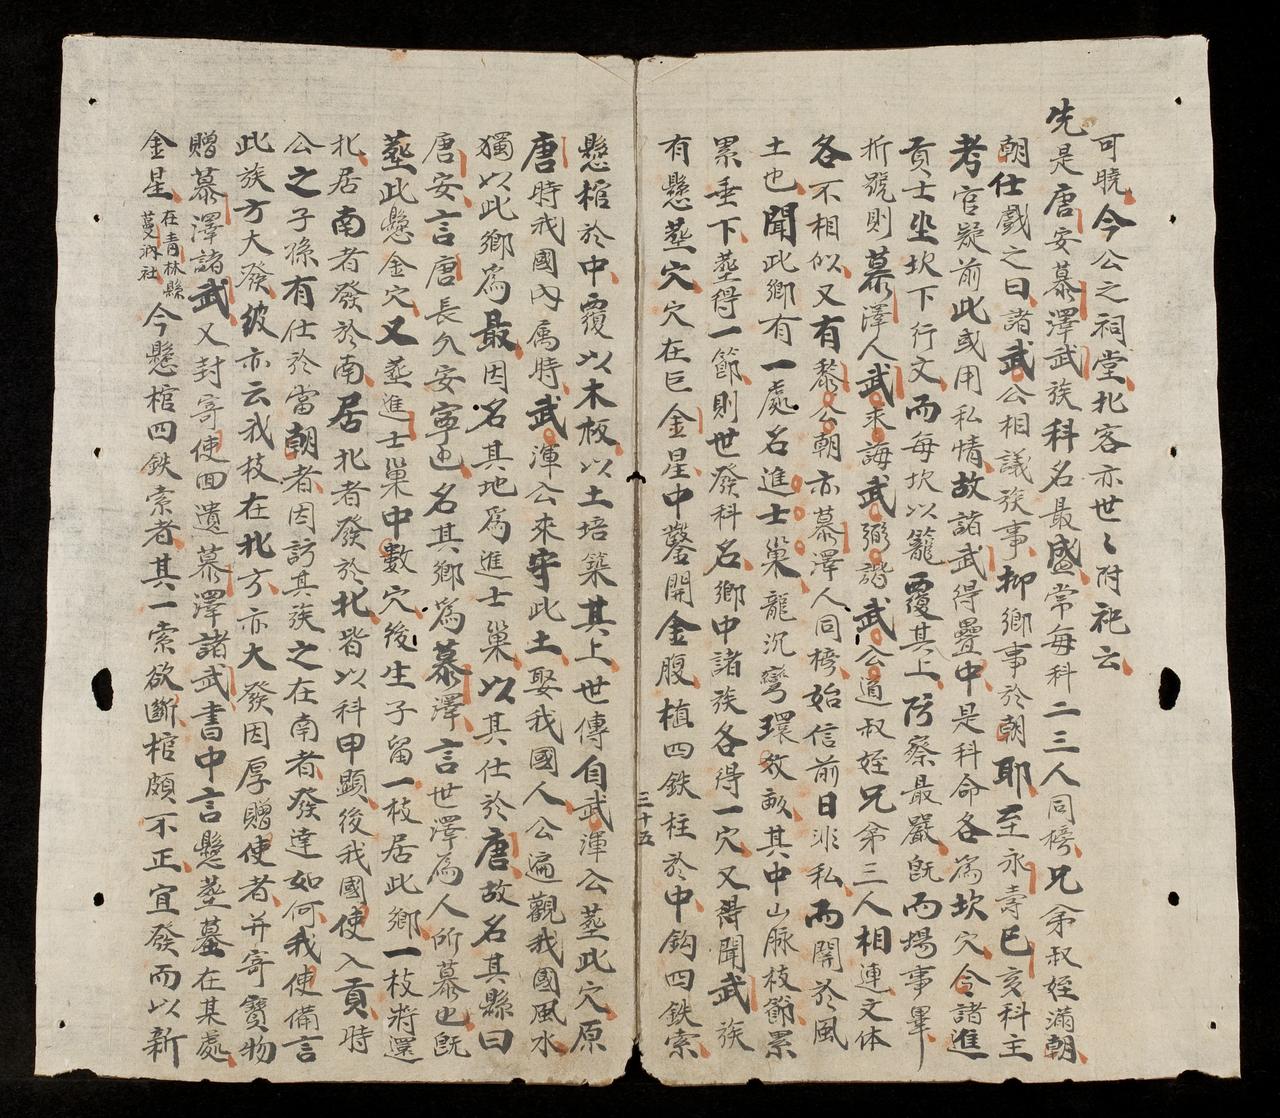 可曉今公之祠堂北客亦世々附祀云
先是唐安慕澤武族科名最盛常每科二三人同榜兄弟叔姪滿朝
朝仕戲之曰諸武公相議族事抑鄉事於朝耶至永壽巳亥科主
考官疑前此或用私情故諸武得疊中是科命各為坎穴令諸進
貢士坐坎下行文而每坎以籠覆其上防察最嚴旣而場事畢
折號則慕澤人武來誨武弼諧武公道叔姪兄弟三人相連文体
各不相似又有黎公朝亦慕澤人同榜始信前日非私而關於風
土也聞此鄉有一處名進士巢龍沉彎環教畝其中山脉枝節累
累垂下塟得一節則世發科名鄉中諸族各得一穴又得聞武族
有懸塟穴穴在巨金星中鑿開金腹植四鉄柱於中鈎四鉄索
三十五
懸棺於中覆以木板以土培築其上世傳自武渾公塟此穴原
唐時我國內属時武渾公來守此土娶我國人公遍觀我國風水
獨以此鄉爲最因名其地爲進士巢以其仕於唐故名其縣曰
唐安言唐長久安寧也名其鄉爲慕澤言世澤為人所慕也旣
塟此懸金穴又塟進士巢中數穴後生子留一枝居此鄉一枝將還
北居南者發於南居北者發於北皆以科甲顕後我國使入貢時
公之子孫有仕於當朝者因訪其族之在南者發達如何我使備言
此族方大發彼亦云我枝在北方亦大發因厚贈使者并寄寶物
贈慕澤諸武又封寄使回遺慕澤諸武書中言懸塟墓在某處
金星在青林縣蔓汭社今懸棺四鉄索者其一索欲斷棺頗不正宜發而以新